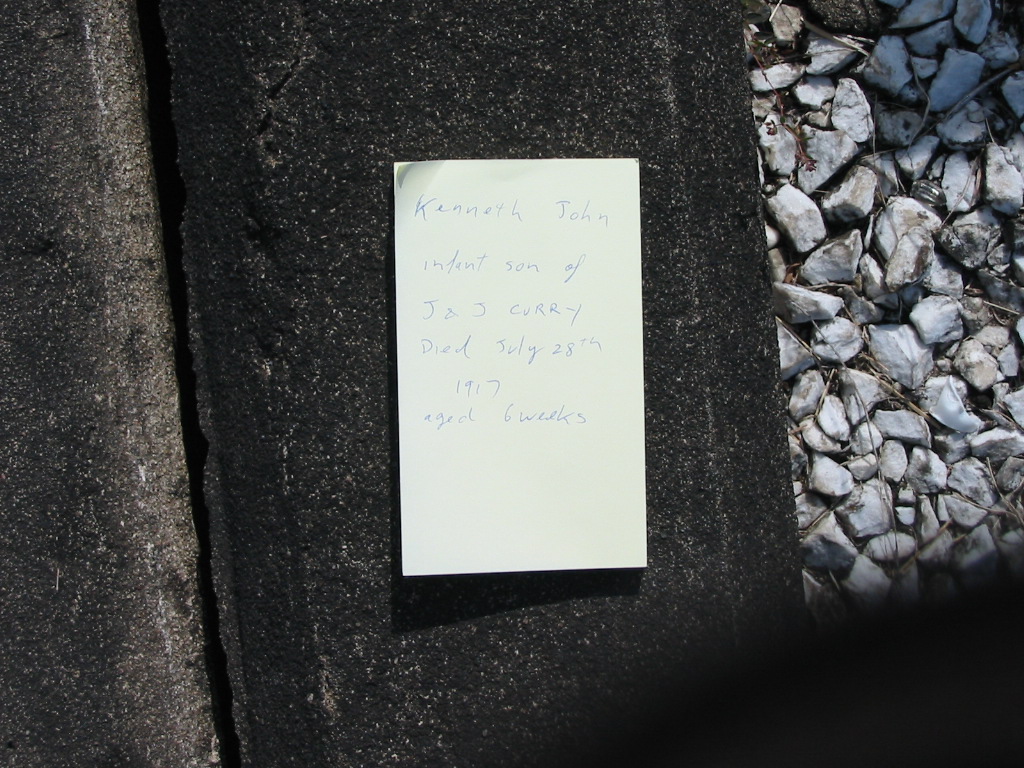 Kenneth John
infant son of
J & J CURRY
Died July 28th
1917
aged 6 weeks